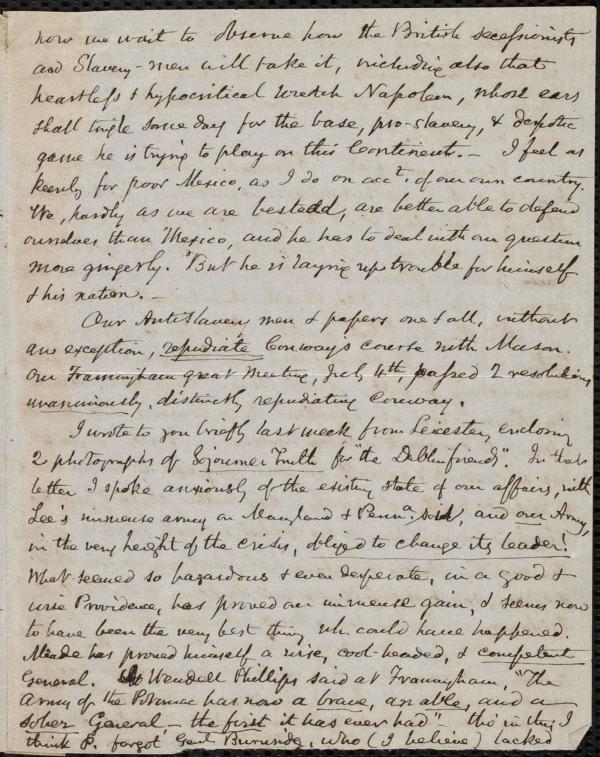 now we wait to observe how the British secessionists
and Slavery-men will take it, including also that
heartless & hypocritical wretch Napoleon, whose ears
shall tingle some day for the base, pro-slavery, & despotic
game he is trying to play on this Continent. — I feel as
keenly for poor Mexico, as I do on acct. of our own country.
We, hardly as we are bestedd, are better able to defend
ourselves than Mexico, and he has to deal with our question
more gingerly. But he is laying up trouble for himself
& his nation. —
Our AntiSlavery men & papers one & all, without
an exception, repudiate Conway's course with Mason.
Our Framingham great Meeting, July 4th, passed 2 resolutions
unanimously, distinctly repudiating Conway.
I wrote to you briefly last week from Leicester, enclosing
2 photographs of Sojourner Truth for "the Dublin friends". In that
letter I spoke anxiously of the existing state of our affairs, with
Lee's immense army on Maryland & Penna. soil, and our Army,
in the very height of the crisis, obliged to change its leader!
What seemed so hazardous & even desperate, in a good &
wise Providence, has proved our immense gain, & seems now
to have been the very best thing wh. could have happened.
Meade has proved himself a wise, cool-headed, & competent
General. Wendell Phillips said at Framingham, "The
Army of the Potomac has now a brave, an able, and a
sober General, — the first it has ever had" — tho' in this I
think P. forgot Genl. Burnside, who (I believe) lacked